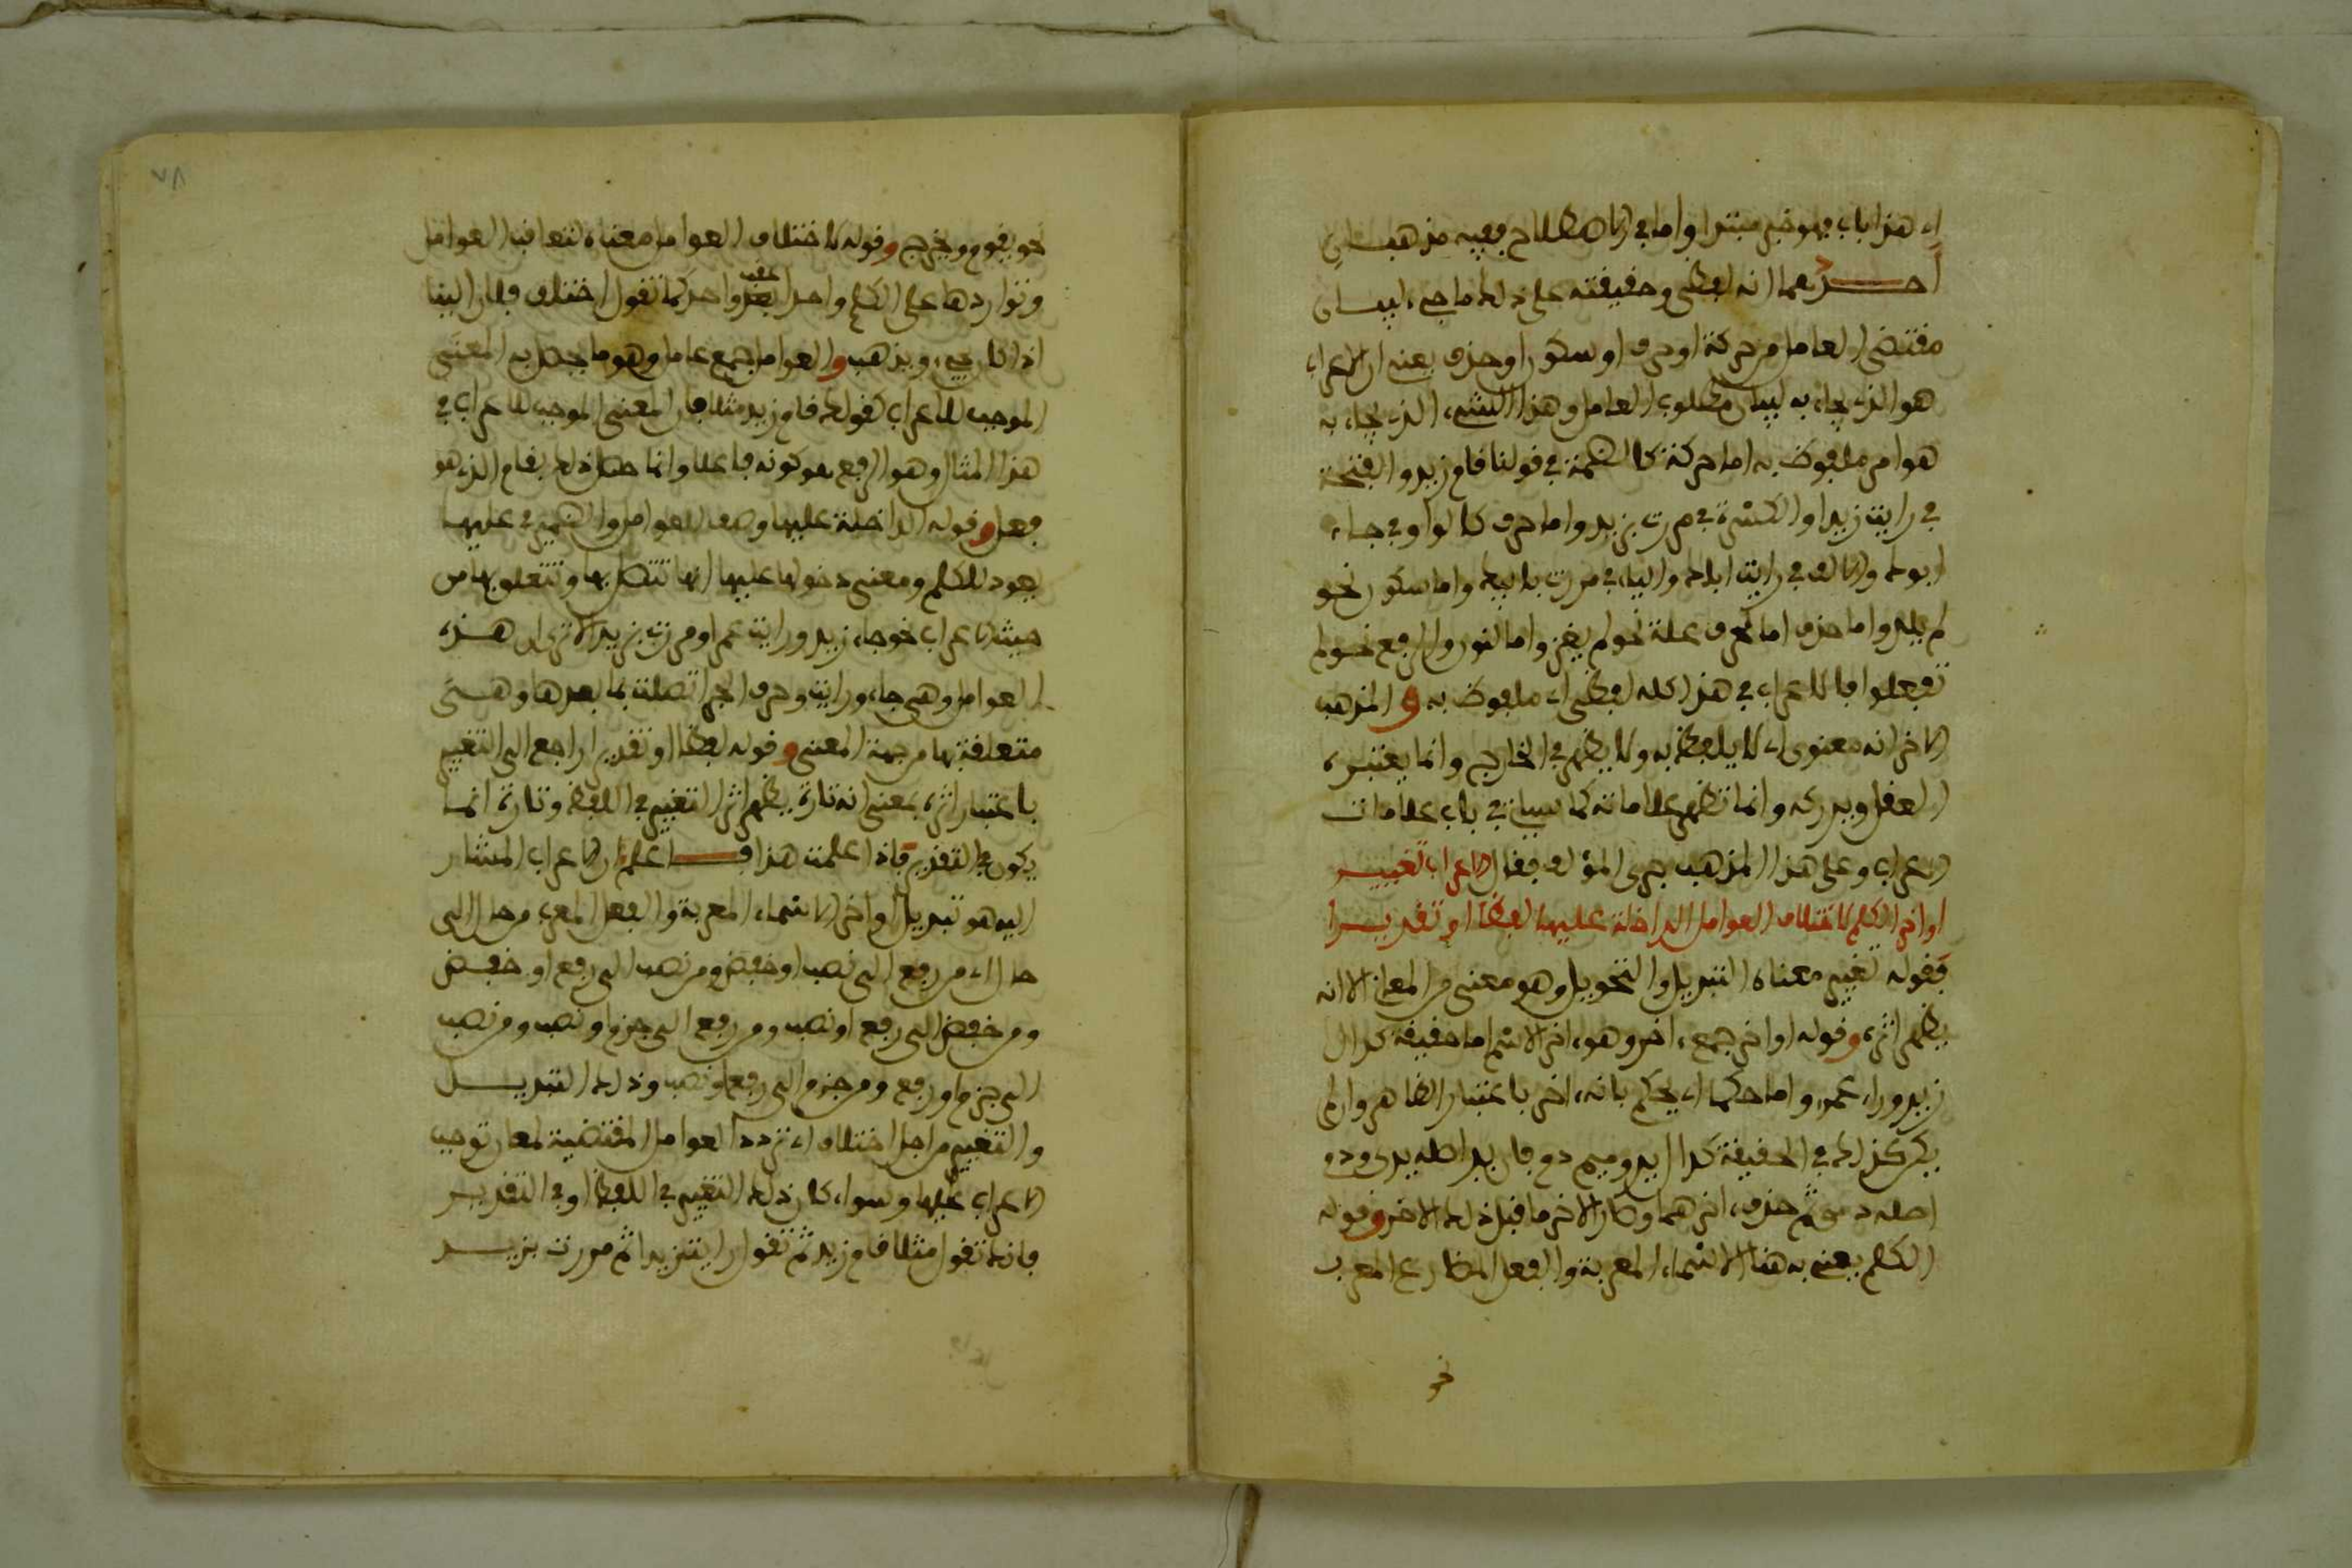 اي هذا باب فهو خبر مبتدا واما في الاصطلاح ففيه مذهبان
احدهما انه لفظي وحقيقته على ذلك ما جيء لبيان
مقتضى العامل من حركة او حرف او سكون او حذف يعني ان الاعراب
هو الذي يجاء به لبيان مطلوب العامل وهذا الشيء الذي يجاء به
هو امر ملفوظ به اما حركة كالضمة في قولنا قام زيد والفتحة
في رايت زيدا والكسرة في مررت بزيد واما حرف كالواو في جاء
ابوك والالف في رايت اباك والياء في مررت بابيك واما سكون نحو
لم يلد واما حذف اما لحرف علة نحو لم يغز واما لنون الرفع نحو لم
تفعلوا فالاعراب في هذا كله لفظي اي ملفوظ به والمذهب
الاخر انه معنوي اي لا يلفظ به ولا يظهر في الخارج وانما يعتبره
العقل ويدركه وانما تظهر علاماته كما سياتي في باب علامات
الاعراب وعلى هذا المذهب جرى المؤلف فقال الاعراب تغيير
اواخر الكلم لاختلاف العوامل الداخلة عليها لفظا او تقديرا
فقوله تغيير معناه التبديل والتحويل وهو معنى من المعاني الا انه
يظهر اثره وقوله اواخر جمع ءاخر وهو ءاخر الاسم اما حقيقة كدال
زيد وراء عمرو واما حكما اي يحكم بانه ءاخر باعتبار الظاهر وان لم
يكن كذلك في الحقيقة كدال يد وميم دم فان يد اصله يدي ودم
اصله دمي ثم حذف ءاخرهما وصار الاخر ما قبل ذلك الاخر وقوله
الكلم يعني به هنا الاسماء المعربة والفعل المضارع المعرب
نحو
نحو يقوم ويخرج وقوله لاختلاف العوامل معناه لتعاقب العوامل
وتواردها على الكلم واحدا بعد عقب واحد كما تقول اختلف فلان الينا
اذا كان يجيء ويذهب والعوامل جمع عامل وهو ما يحصل به المعنى
الموجب للاعراب كقولك قام زيد مثلا فان المعنى الموجب للاعراب في
هذا المثال وهو الرفع هو كونه فاعلا وانما حصل ذلك بقام الذي هو
فعل وقوله الداخلة عليها وصف للعوامل والضمير في عليها
يعود للكلم ومعنى دخولها عليها انها تتصل بها وتتعلق بها من
حيث الاعراب نحو جاء زيد ورايت عمرا ومررت بزيد الا ترى ان هذه
العوامل وهي جاء ورايت وحرف الجر اتصلت بما بعدها وهي
متعلقة بها من جهة المعنى وقوله لفظا او تقديرا راجع الى التغيير
باعتبار اثره بمعنى انه تارة يظهر اثر التغيير في اللفظ وتارة انما
يكون في التقدير فاذا علمت هذا فاعلم ان الاعراب المشار
اليه هو تبديل اواخر الاسماء المعربة والفعل المعرب من حال الى
حال اي من رفع الى نصب او خفض ومن نصب الى رفع او خفض
ومن خفض الى رفع او نصب ومن رفع الى جزم او نصب ومن نصب
الى جزم او رفع ومن جزم الى رفع او نصب وذلك التبديل
والتغيير من اجل اختلاف اي تردد العوامل المقتضية لمعان توجب
الاعراب عليها وسواء كان ذلك التغيير في اللفظ او في التقدير
فانك تقول مثلا قام زيد ثم تقول رايت زيدا ثم مررت بزيد
٧٨